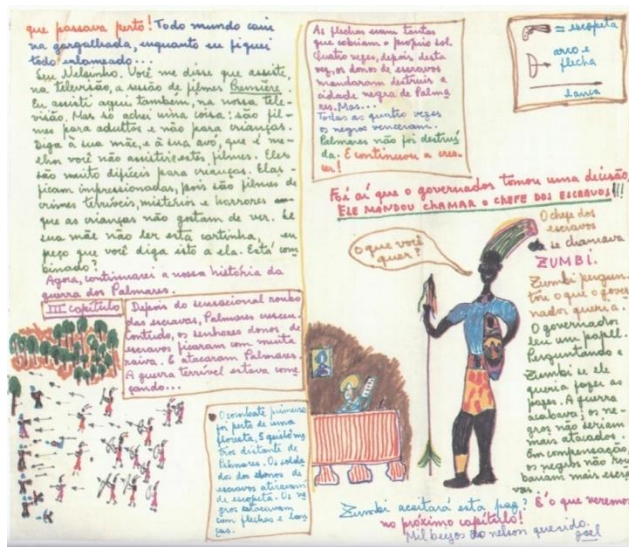 que passava perto! Todo mundo caiu
na gargalhada, enquanto eu fiquei
todo enlameado...
Seu Nelsinho. Você me disse que assiste,
na televisão, a sessão de filmes Premiere
Eu assisti aqui também, na nossa tele-
visão. Mas só achei uma coisa: são fil-
mes para adultos e não para crianças.
Diga à sua mãe, e à sua avó, que é me-
lhor você não assistir estes filmes. Eles
são muito difíceis para crianças. Elas
ficam impressionadas, pois são filmes de
crimes terríveis, mistérios e horrores
que as crianças não gostam de ver. Se
sua mãe não ler esta cartinha, eu
peço que você diga isto a ela. Está com
binado?
Agora, continuarei a nossa história da
guerra dos Palmares.
III capítulo
Depois do sensacional roubo
das escravas, Palmares cresceu.
Contudo, os senhores donos de
escravos ficaram com muita
raiva. E atacaram Palmares.
A guerra terrível estava come
çando...
O combate primeiro
foi perto de uma
floresta, 5 quilôme
tros distante de
Palmares. Os solda
dos dos donos de
escravos atiraram
de escopeta. Os ne
gros atacavam
com flechas e lan
ças.
As flechas eram tantas
que cobriam o próprio sol.
Quatro vezes, depois desta
vez, os donos de escravos
mandaram destruir a
cidade negra de Palma
res. Mas...
Todas as quatro vezes
os negros venceram.
Palmares não foi destruí
da. E continuou a cres-
cer!
= escopeta
arco e
flecha
lança
Foi aí que o governador tomou uma decisão,
ELE MANDOU CHAMAR O CHEFE DOS ESCRAVOS!!!
O que você
quer?
O chefe dos
escravos
se chamava
ZUMBI.
Zumbi pergun
tou o que o gover
nador queria.
O governador
leu um papel.
Perguntando a
Zumbi se ele
queria fazer as
pazes. A guerra
acabava; os ne-
gros não seriam
mais atacados
Em compensação,
os negros não rou
bariam mais escra
vas.
Zumbi aceitará esta paz? É o que veremos
no próximo capítulo!
Mil beijos do nelson querido.
Joel